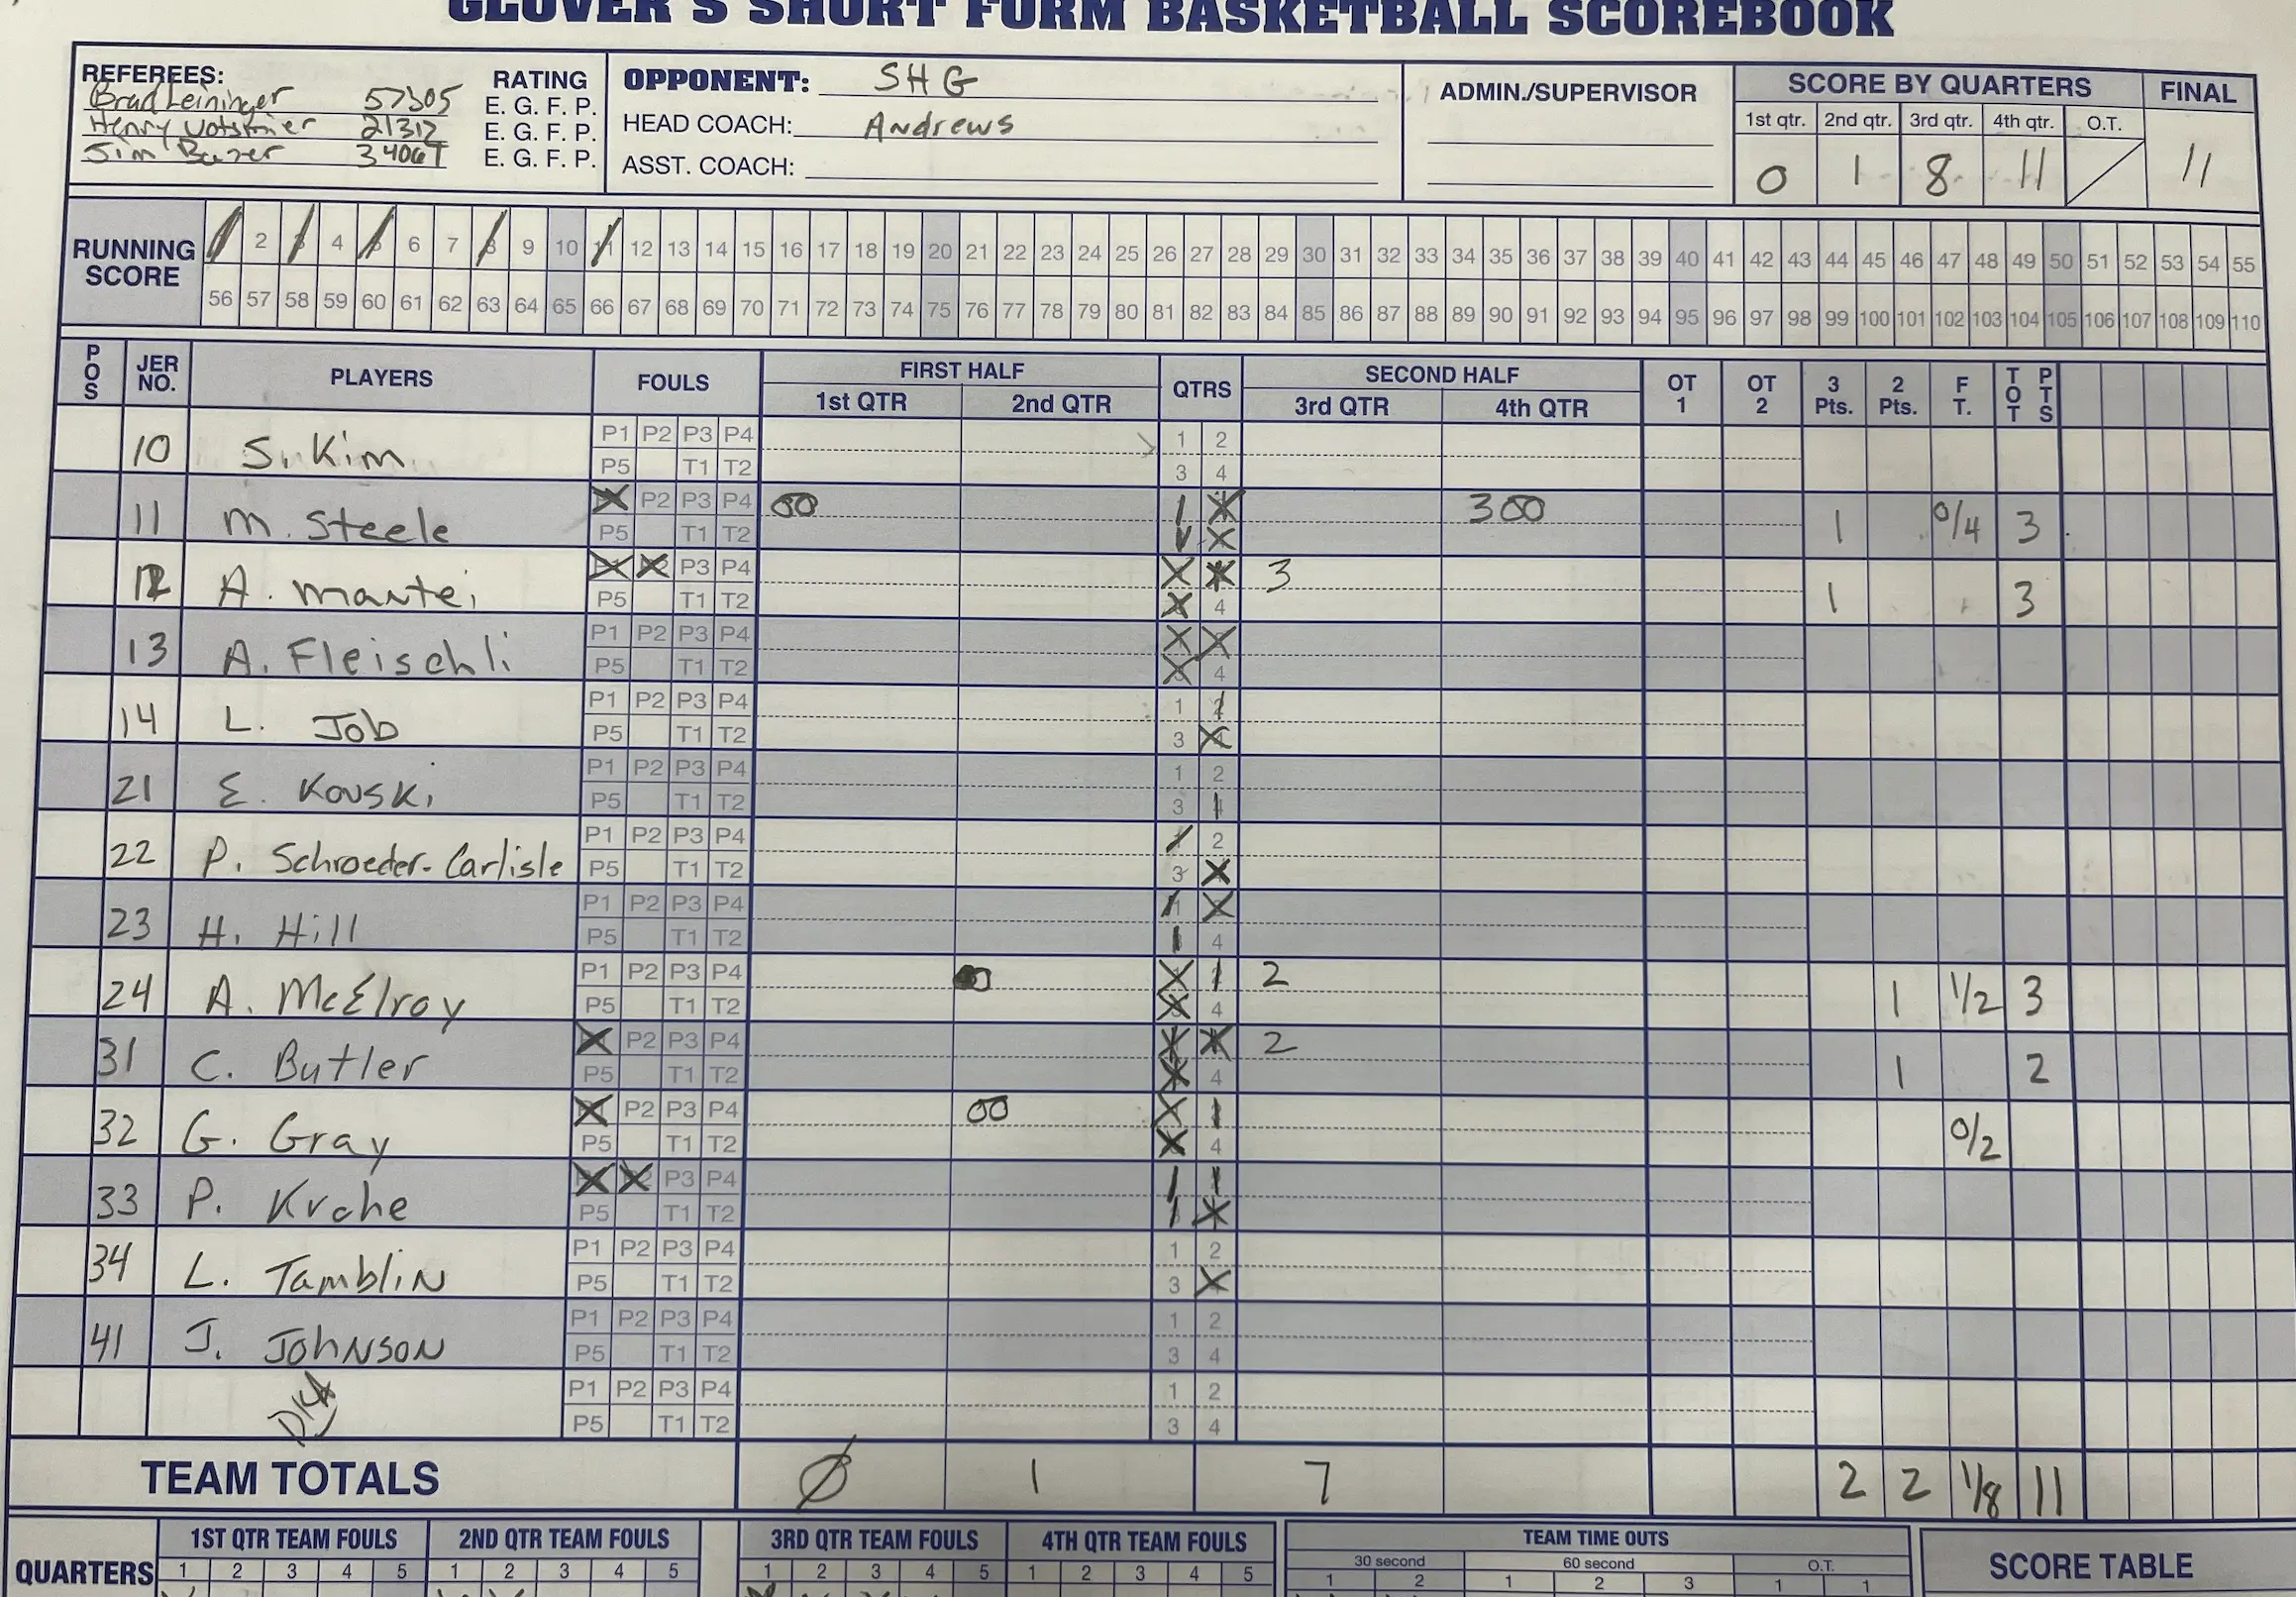 GLOVER'S SHORT FORM BASKETBALL SCOREBOOK
REFEREES: RATING
Brad Leininger 57305 E. G. F. P.
Henry 21312 E. G. F. P.
Jim E. G. F. P.
OPPONENT: SHG
HEAD COACH: Andrews
ASST. COACH:
ADMIN./SUPERVISOR
SCORE BY QUARTERS FINAL
1st qtr. 2nd qtr. 3rd qtr. 4th qtr. O.T.
0 1 8 11 / 11
RUNNING SCORE
1 2 3 4 5 6 7 8 9 10 11 12 13 14 15 16 17 18 19 20 21 22 23 24 25 26 27 28 29 30 31 32 33 34 35 36 37 38 39 40 41 42 43 44 45 46 47 48 49 50 51 52 53 54 55
56 57 58 59 60 61 62 63 64 65 66 67 68 69 70 71 72 73 74 75 76 77 78 79 80 81 82 83 84 85 86 87 88 89 90 91 92 93 94 95 96 97 98 99 100 101 102 103 104 105 106 107 108 109 110
POS JER NO. PLAYERS FOULS FIRST HALF QTRS SECOND HALF OT 1 OT 2 3 Pts. 2 Pts. F T. TOT PTS
1st QTR 2nd QTR 3rd QTR 4th QTR
10 S. Kim P1 P2 P3 P4 1 2
P5 T1 T2 3 4
11 M. Steele P2 P3 P4 00 300 1 0/4 3
P5 T1 T2
12 A. Mantei P3 P4 3 1 3
P5 T1 T2 4
13 A. Fleischli P1 P2 P3 P4
P5 T1 T2 4
14 L. Job P1 P2 P3 P4 1 2
P5 T1 T2 3
21 E. Kouski P1 P2 P3 P4 1 2
P5 T1 T2 3 4
22 P. Schroeder-Carlisle P1 P2 P3 P4 1 2
P5 T1 T2 3
23 H. Hill P1 P2 P3 P4 1
P5 T1 T2 3 4
24 A. McElroy P1 P2 P3 P4 2 1 1/2 3
P5 T1 T2 4
31 C. Butler P2 P3 P4 2 1 2
P5 T1 T2 4
32 G. Gray P2 P3 P4 00 0/2
P5 T1 T2 4
33 P. Krche P3 P4
P5 T1 T2
34 L. Tamblin P1 P2 P3 P4 1 2
P5 T1 T2 3
41 J. Johnson P1 P2 P3 P4 1 2
P5 T1 T2 3 4
P1 P2 P3 P4 1 2
P5 T1 T2 3 4
TEAM TOTALS 0 1 7 2 2 1/8 11
QUARTERS 1ST QTR TEAM FOULS 2ND QTR TEAM FOULS 3RD QTR TEAM FOULS 4TH QTR TEAM FOULS TEAM TIME OUTS SCORE TABLE
30 second 60 second O.T.
1 2 3 4 5 1 2 3 4 5 1 2 3 4 5 1 2 3 4 5 1 2 1 2 3 1 1